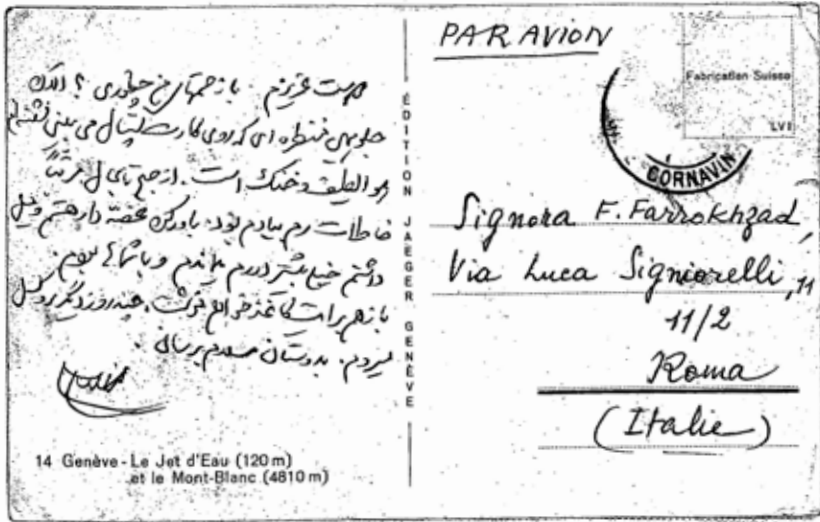 دوست عزیزم . چطوری ؟ الان
جلوی منظره ای که روی کارت پستال می بینی نشسته ام
هوا لطیف و خنک است . از صبح تا بحال مرتباً
خاطرات رم بیادم بود . باور کن غصه دارم و میل
داشتم خیلی بیشتر در رم بمانم و با شماها بودم
باز هم برات کاغذ خواهم نوشت . چند روز دیگر بروکسل
میروم . بدوستان سلام برسان .
14 Genève - Le Jet d'Eau (120 m)
et le Mont-Blanc (4810 m)
ÉDITION JAEGER GENÈVE
PAR AVION
Fabrication Suisse
LVI
CORNAVIN
Signora F. Farrokhzad,
Via Luca Signiorelli, 11
11/2
Roma
(Italie)